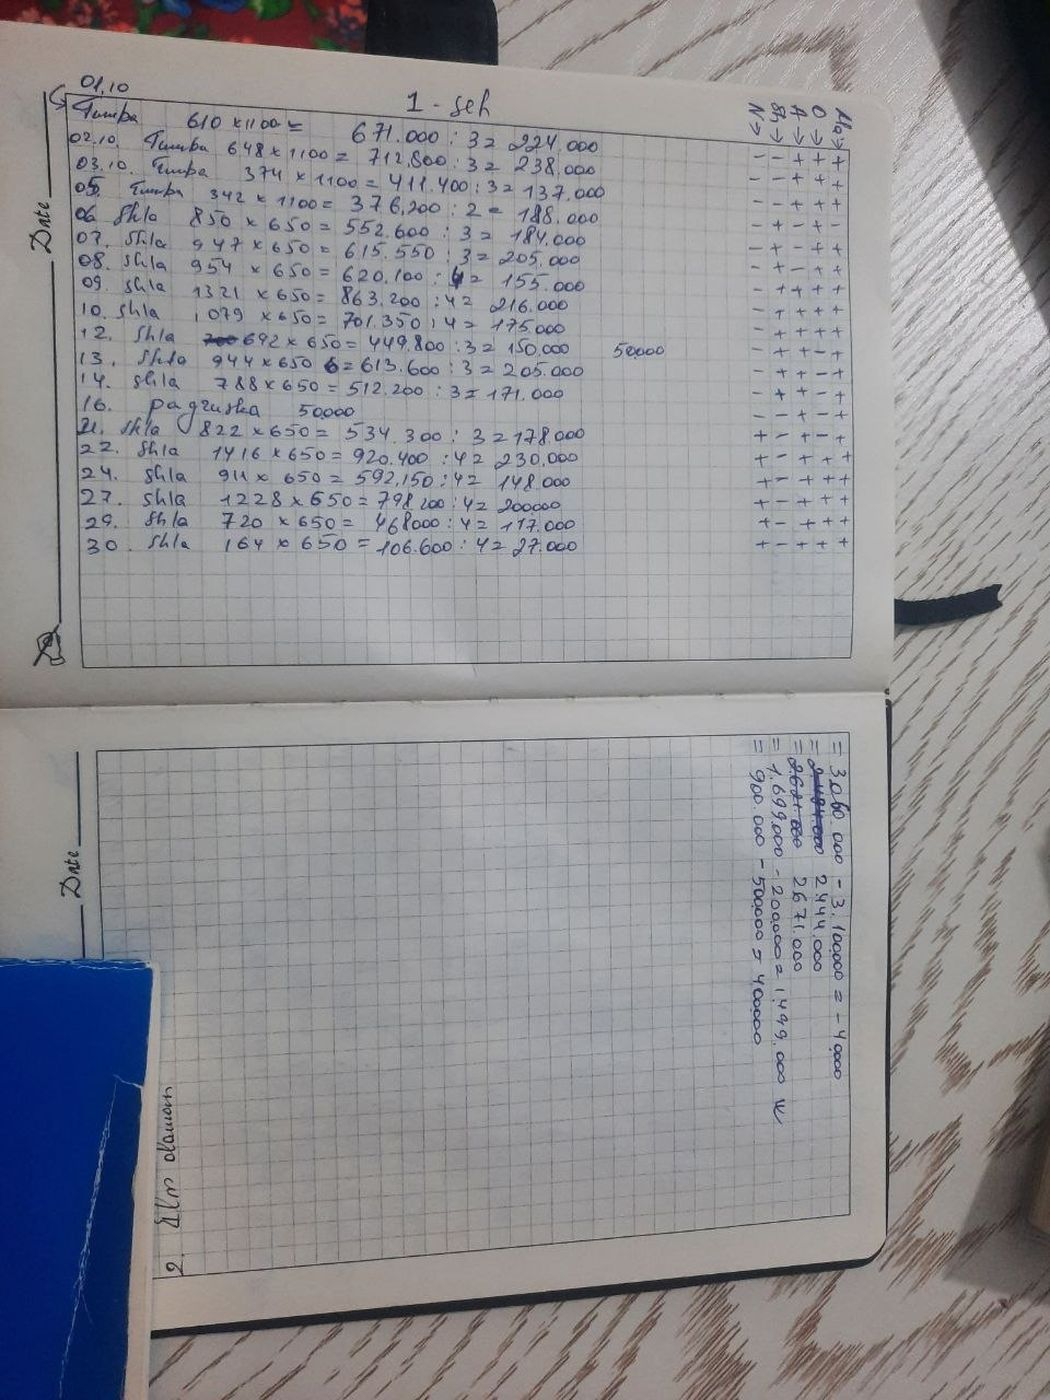 01.10
1 - seh
Tumba 610 x 1100 = 671.000 : 3 = 224.000
02.10. Tumba 648 x 1100 = 712.800 : 3 = 238.000
03.10. Tumba 374 x 1100 = 411.400 : 3 = 137.000
05. Tumba 342 x 1100 = 376.200 : 2 = 188.000
06. Shla 850 x 650 = 552.600 : 3 = 184.000
07. Shla 947 x 650 = 615.550 : 3 = 205.000
08. Shla 954 x 650 = 620.100 : 4 = 155.000
09. Shla 1321 x 650 = 863.200 : 4 = 216.000
10. Shla 1079 x 650 = 701.350 : 4 = 175.000
12. Shla 692 x 650 = 449.800 : 3 = 150.000 50000
13. Shla 944 x 650 = 613.600 : 3 = 205.000
14. Shla 788 x 650 = 512.200 : 3 = 171.000
16. pagruska 50000
21. Shla 822 x 650 = 534.300 : 3 = 178.000
22. Shla 1416 x 650 = 920.400 : 4 = 230.000
24. Shla 911 x 650 = 592.150 : 4 = 148.000
27. Shla 1228 x 650 = 798200 : 4 = 200000
29. Shla 720 x 650 = 468000 : 4 = 117.000
30. Shla 164 x 650 = 106.600 : 4 = 27.000
Date
= 3060 000 - 3.100000 = - 40000
O → + + + - + - + + + - - - - - + + + + +
= 2484000 2444.000
A → + + + + - - + + + + + + + + + + + +
= 2671000 2671.000
= 1.699.000 - 200.000 = 1.499.000
N → - - - - - - - - - - - - - + + + + + +
= 900.000 - 500000 = 400000
Date
2.